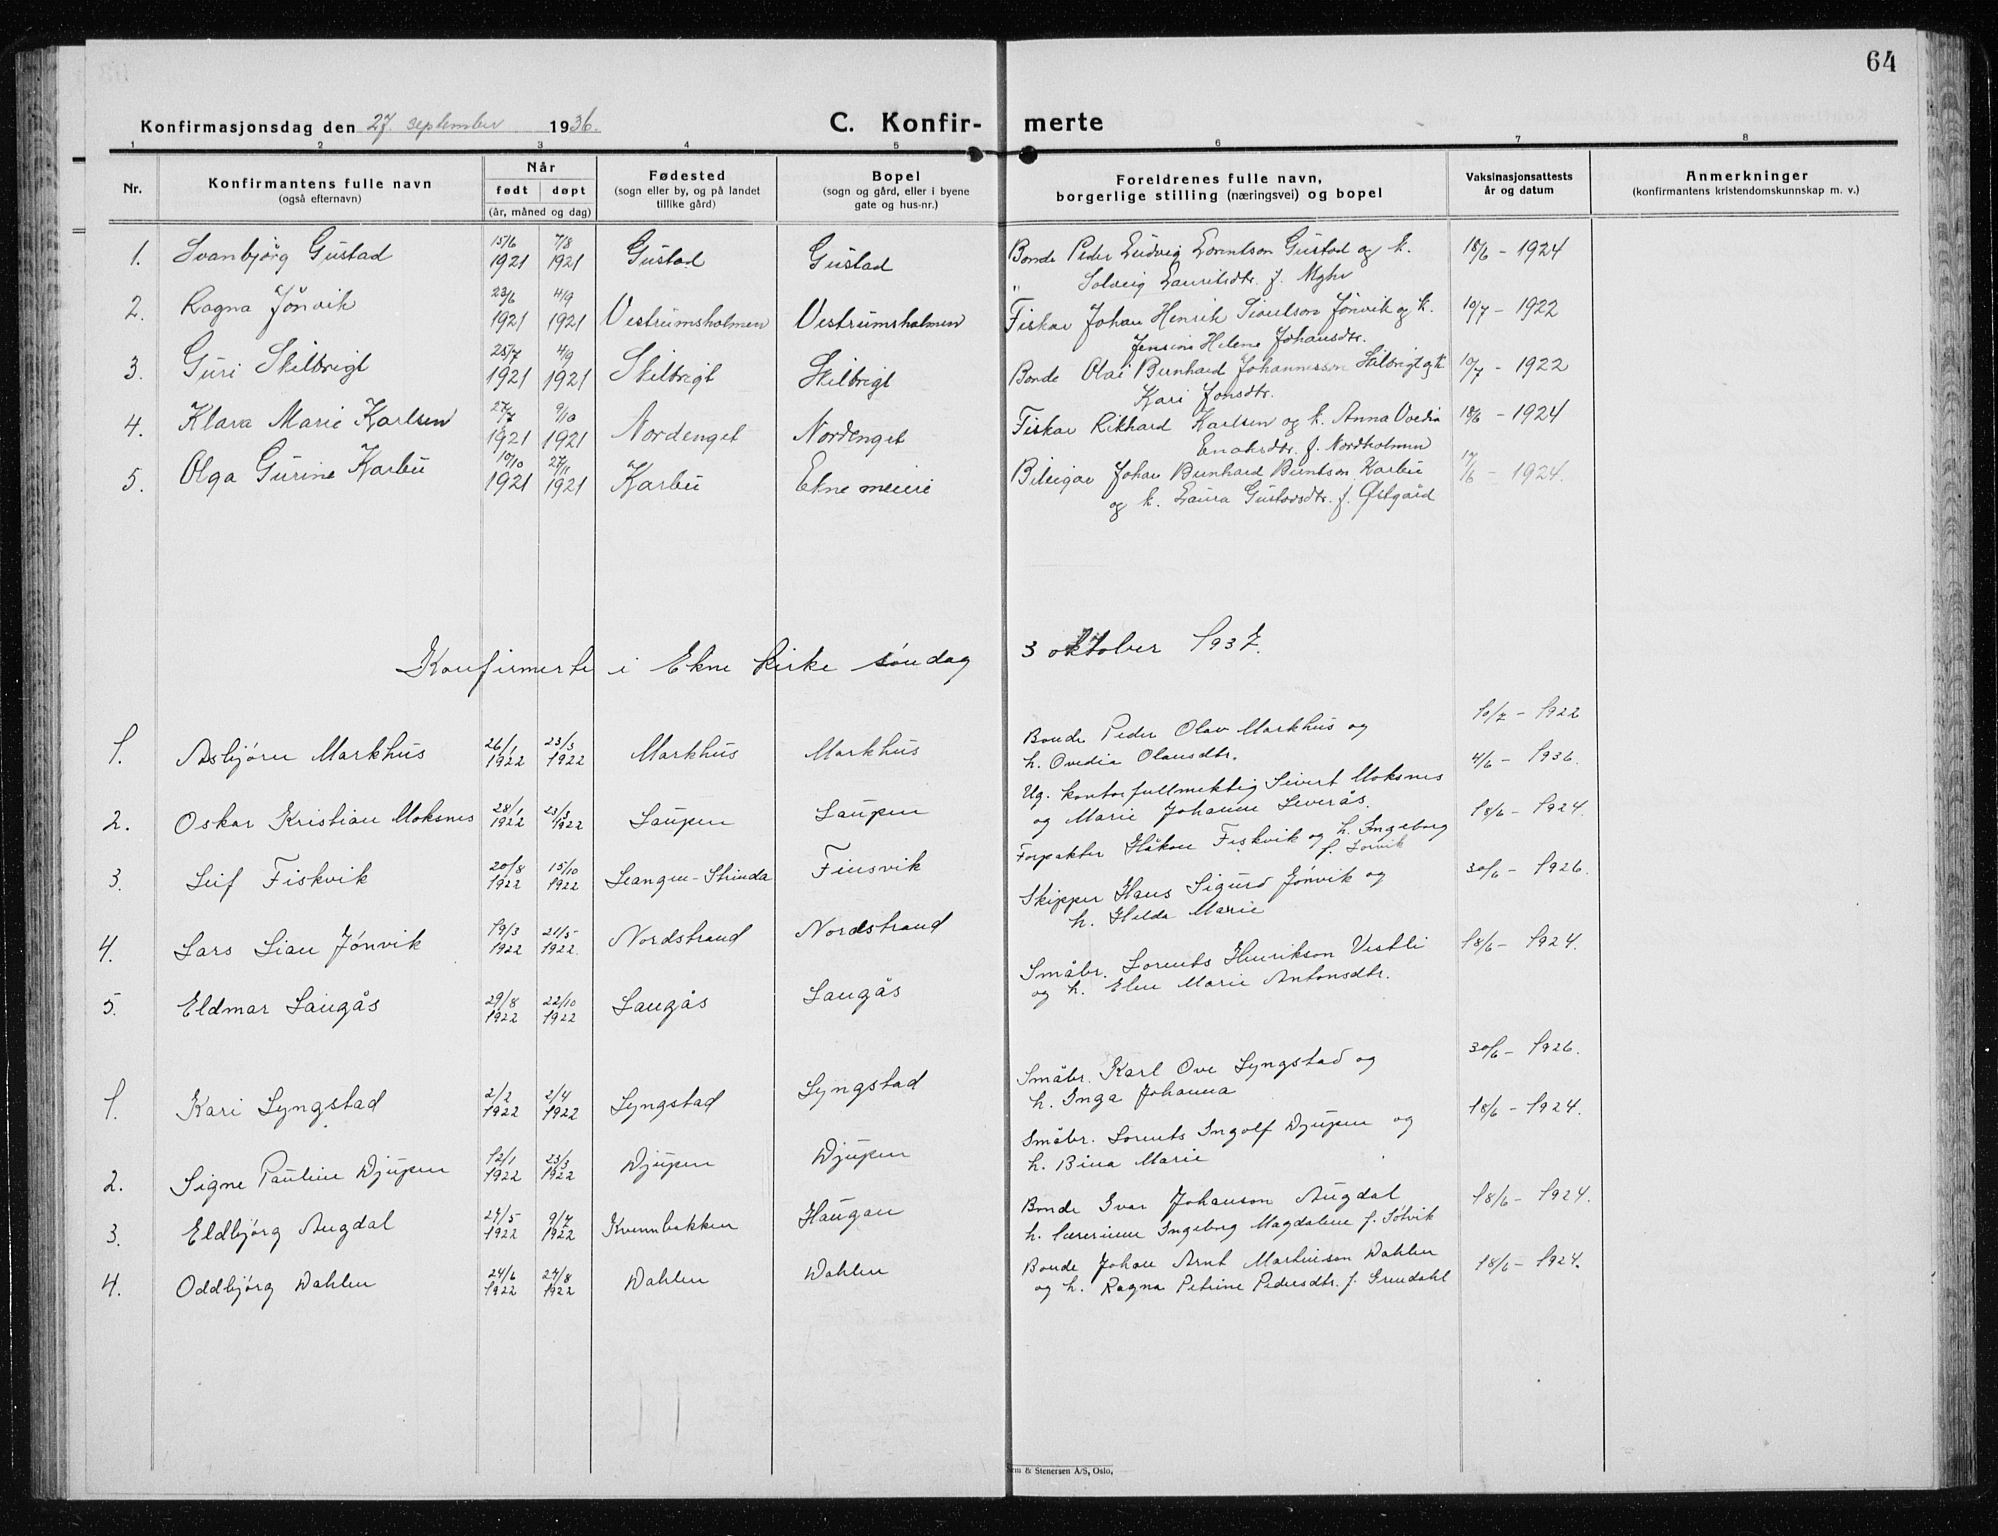 64
Konfirmasjonsdag den 27 september 1936.
C. Konfir- merte
1 2 3 4 5 6 7 8
Nr.
Konfirmantens fulle navn
(også efternavn)
Når
født døpt
(år, måned og dag)
Fødested
(sogn eller by, og på landet
tillike gård)
Bopel
(sogn og gård, eller i byene
gate og hus-nr.)
Foreldrenes fulle navn,
borgerlige stilling (næringsvei) og bopel
Vaksinasjonsattests
år og datum
Anmerkninger
(konfirmantens kristendomskunnskap m. v.)
1. Svanbjørg Gustad 15/6 1921 7/8 1921 Gustad Gustad Bonde Peder Ludvig Lorntson Gustad og k. 18/6 - 1924
" Solveig Lauritsdtr. f. Myhr
2. Ragna Jønvik 23/6 1921 4/9 1921 Vestrumsholmen Vestrumsholmen Fiskar Johan Henrik Sivertson Jønvik og k. 10/7 - 1922
Jensine Helene Johansdtr.
3. Guri Skilbrigt 25/7 1921 4/9 1921 Skilbrigt Skilbrigt Bonde Olai Bernhard Johannesson Skilbrigt og k. 10/7 - 1922
Kari Jonsdtr.
4. Klara Marie Karlsen 27/7 1921 9/10 1921 Nordenget Nordenget Fiskar Rikhard Karlsen og k. Anna Ovedia 18/6 - 1924
Enoksdtr. f. Nordholmen
5. Olga Gurine Karbu 10/10 1921 27/11 1921 Karbu Ekne meieri Bileigar Johan Bernhard Berntson Karbu 17/6 - 1924.
og k. Laura Gustavsdtr. f. Østgård
Konfirmerte i Ekne kirke søndag 3 oktober 1937.
1. Asbjørn Markhus 26/1 1922 23/3 1922 Markhus Markhus Bonde Peder Olav Markhus og 10/7 - 1922
h. Ovedia Olausdtr.
2. Oskar Kristian Moksnes 28/1 1922 23/3 1922 Saupen Saupen Ug. kontorfullmektig Sivert Moksnes 4/6 - 1936.
og Marie Johanne Leverås.
3. Leif Fiskvik 20/8 1922 15/10 1922 Leangen - Strinda Finsvik Forpakter Håkon Fiskvik og h. Ingeborg 18/6 - 1924.
f. Sorvik
4. Lars Lian Jønvik 19/3 1922 21/5 1922. Nordstrand Nordstrand Skipper Hans Sigurd Jønvik og 30/6 - 1926.
h. Hilda Marie
5. Eldmar Laugås 29/8 1922 22/10 1922 Laugås Laugås Småbr. Lorents Henrikson Vestli 18/6 - 1924.
og h. Elen Marie Antonsdtr.
1. Kari Lyngstad 2/2 1922 2/4 1922 Lyngstad Lyngstad Småbr. Karl Ove Lyngstad og 30/6 - 1926.
h. Inga Johanna
2. Signe Pauline Djupen 12/1 1922 23/3 1922 Djupen Djupen Småbr. Lorents Ingolf Djupen og 18/6 - 1924.
h. Bina Marie
3. Eldbjørg Augdal 27/5 1922 9/7 1922 Kvernbakken Haugan Bonde Ivar Johanson Augdal 18/6 - 1924.
h. lærerinne Ingeborg Magdalene f. Solvik
4. Oddbjørg Dahlen 24/6 1922 27/8 1922 Dahlen Dahlen Bonde Johan Arnt Martinson Dahlen 18/6 - 1924.
og h. Ragna Petrine Pedersdtr. f. Grendahl
& Stenersen A/S, Oslo.